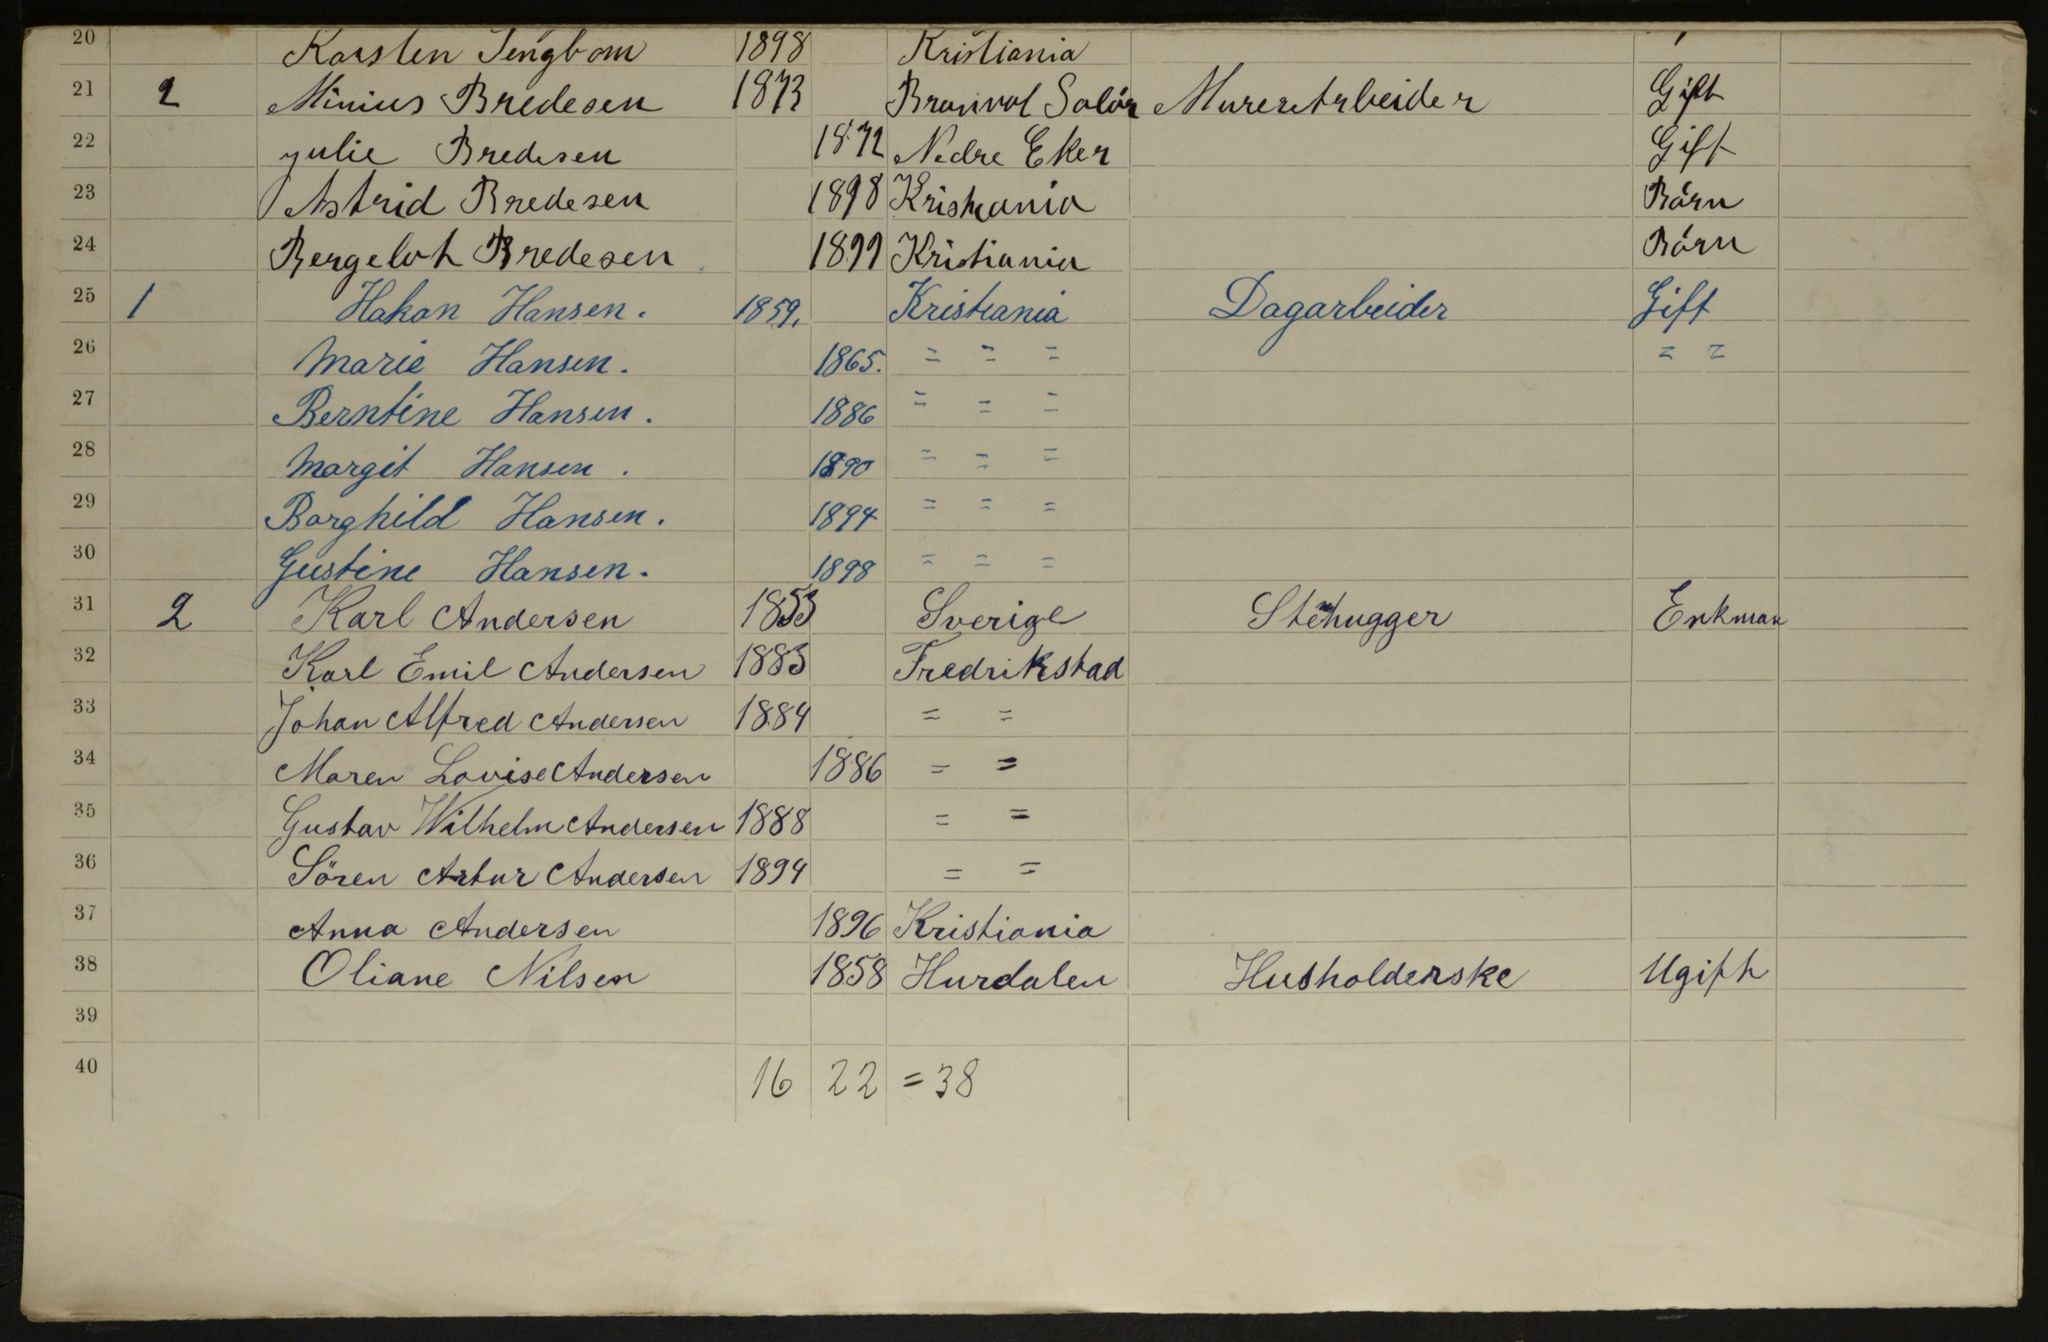 20 Karsten Tengbom 1898 Kristiania
21 2 Minius Bredesen 1873 Branvol Solör Murerarbeider Gift
22 Julie Bredesen 1872 Nedre Eker Gift
23 Astrid Bredesen 1898 Kristiania Börn
24 Bergeloh Bredesen 1899 Kristiania Börn
25 1 Hakon Hansen. 1859. Kristiania Dagarbeider Gift
26 Marie Hansen. 1865. = = = = =
27 Berntine Hansen. 1886 = = =
28 Margit Hansen. 1890 = = =
29 Borghild Hansen. 1894 = = =
30 Gustine Hansen. 1898 = = =
31 2 Karl Andersen 1853 Sverige Stenhugger Enkman
32 Karl Emil Andersen 1883 Fredrikstad
33 Johan Alfred Andersen 1884 = =
34 Maren Lovise Andersen 1886 = =
35 Gustav Wilhelm Andersen 1888 = =
36 Sören Artur Andersen 1894 = =
37 Anna Andersen 1896 Kristiania
38 Oliane Nilsen 1858 Hurdalen Husholderske Ugift
39
40 16 22 = 38